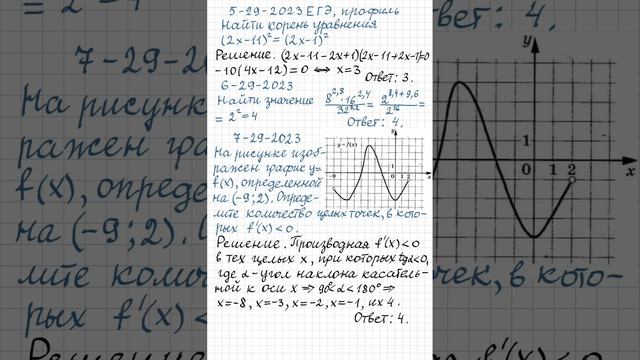 5-29-2023 ЕГЭ, профиль
Найти корень уравнения
(2x-11)²=(2x-1)²
Решение. (2x-11-2x+1)(2x-11+2x-1)=0
-10(4x-12)=0 ⟺ x=3
Ответ: 3.
6-29-2023
Найти значение
8^2,8·16^2,4/32^3,2 = 2^8,4+9,6/2^16 =
= 2²=4
Ответ: 4.
7-29-2023
На рисунке изоб-
ражен график y=
f(x), определенной
на (-9;2). Опреде-
лите количество целых точек, в кото-
рых f'(x)<0.
y=f(x)
y
-9
1
0 1 2
x
Решение. Производная f'(x)<0
в тех целых x, при которых tgα<0,
где α-угол наклона касатель-
ной к оси x ⇒ 90°<α<180° ⇒
x=-8, x=-3, x=-2, x=-1, их 4.
Ответ: 4.
= 2 = 4
7-29-2
На рисунк
ражен гра
f(x), опреде
на (-9;2). О
лите колич
рых f'(x)<
Решение
Ответ: 4.
y
1
0 1 2
x
точек, в кото-